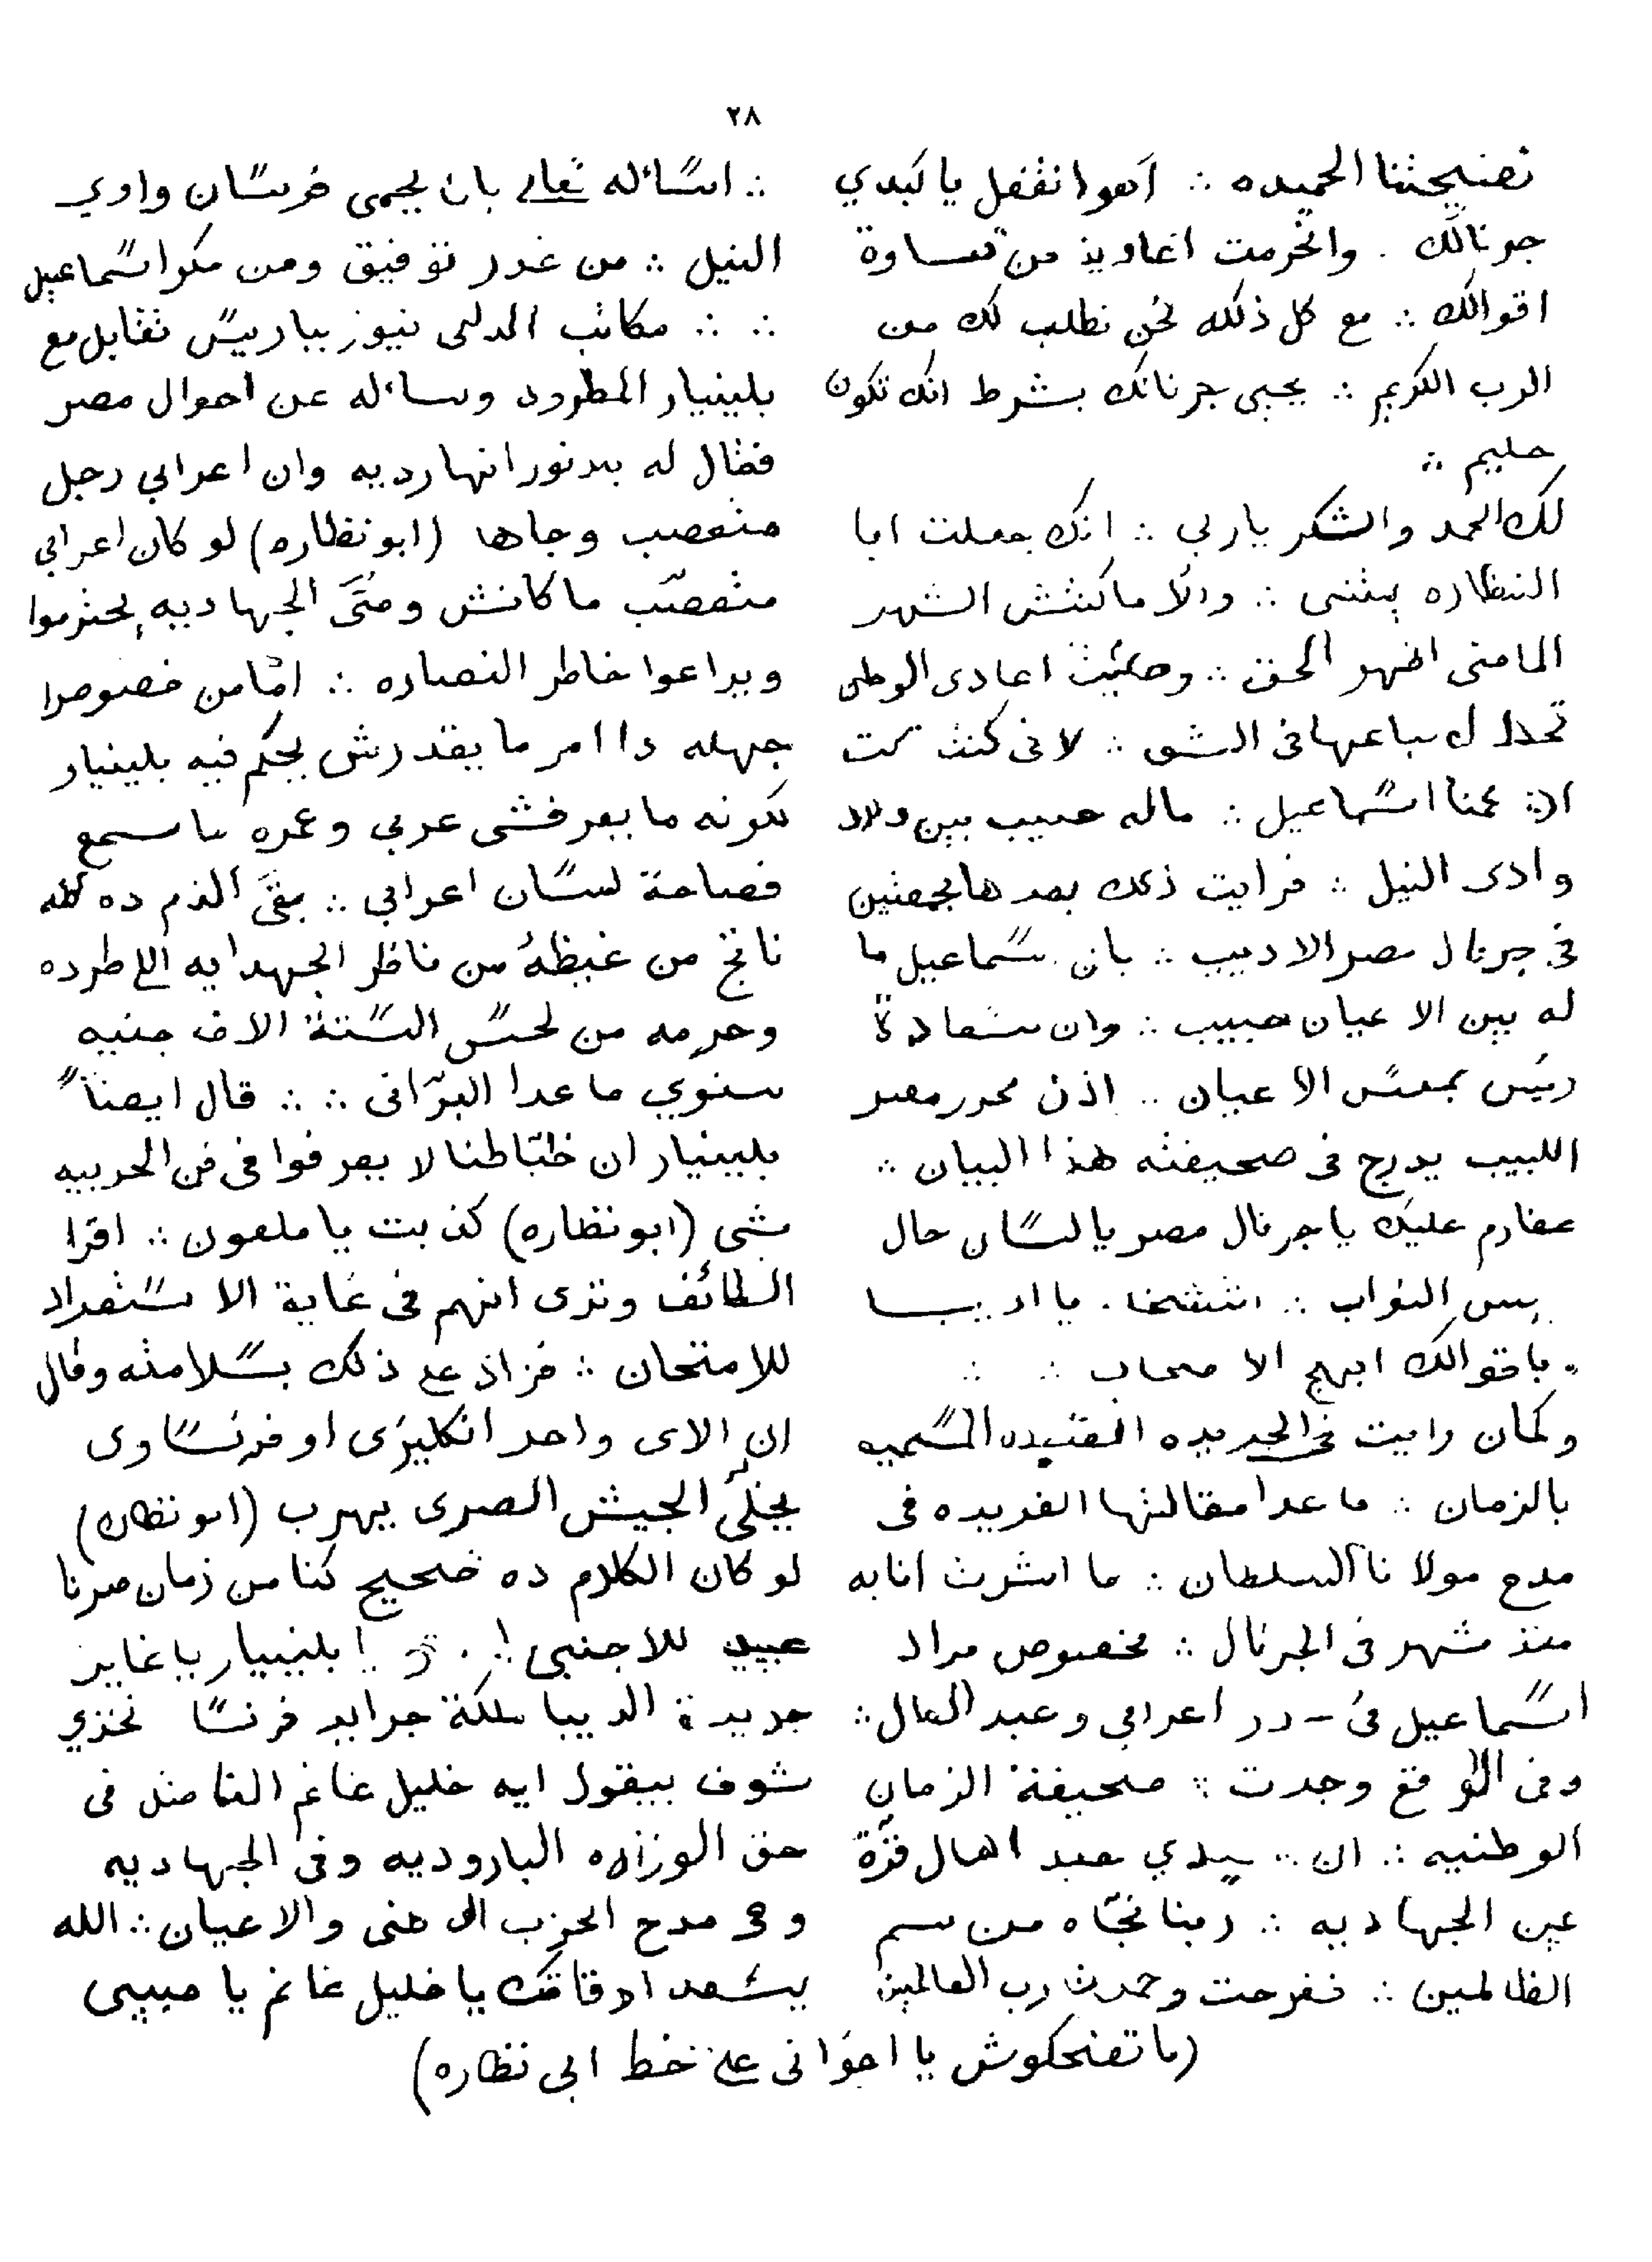 ٢٨
نضيحتنا الحميده ∴ أهوا نقفل يا كبدي
جرنالك . وانخرمت اغاديز من قساوة
اقوالك ∴ مع كل ذلك نحن نطلب لك من
الرب الكريم ∴ يحيى جرنانك بشرط انك تكون
حليم ∴
لك الحمد والشكر يا ربي ∴ انك جعلت ابا
النظاره بيتنبى ∴ والا ما كنتش الشهر
الماضى اظهر الحق ∴ وحكيت اعادى الوطن
سباعها فى الشق ∴ لانى كنت كت
ان عمنا اسماعيل ∴ ماله حبيب بين ولاد
وادى النيل ∴ فرايت ذلك بعدها بجمعتين
فى جرنال مصر الاديب ∴ بان سماعيل ما
له بين الاعيان حبيب ∴ وان سعادة
رئيس مجلس الاعيان .. اذن محرر مصر
اللبيب يدرج فى صحيفته هذا البيان ∴
عفارم عليك يا جرنال مصر يا لسان حال
النواب ∴ . يا اديب
باقوالك ابهج الاصحاب ∴ ∴
وكمان رايت فى الجريده المفيده المسميه
بالزمان ∴ ما عدا مقالتها الفريده فى
مدح مولانا السلطان ∴ ما اشرت انا به
منذ شهر فى الجرنال ∴ بخصوص مراد
اسماعيل فى در اعرابي وعبد العال ∴
وفى الواقع وجدت صحيفة الزمان
الوطنيه ∴ ان .. سيدي عبد العال قرّة
عين الجهاديه ∴ ربنا نجّاه من سم
الظالمين ∴ ففرحت وحمدت رب العالمين
∴ اسأله تعالى بان يحمى فرسان وادي
النيل ∴ من غدر توفيق ومن مكر اسماعيل
∴ ∴ مكاتب الدلى نيوز بباريس تقابل مع
بلينيار المطرود وسأله عن احوال مصر
فقال له بدنور انها رديه وان اعرابي رجل
متعصب وجاها (ابو نظاره) لو كان اعرابي
متعصّب ما كانش ومتَى الجهاديه يحترموا
ويراعوا خاطر النصاره ∴ امّا من خصوص
جهله دا امر ما يقدرش يحكم فيه بلينيار
لكونه ما يعرفشى عربي وعمره ما سمع
فصاحة لسان اعرابي ∴ بقَى الذم ده كله
ناتج من غيظهُ من ناظر الجهدايه اللي طرده
وحرمه من لحس الستة الاف جنيه
سنوي ما عدا البرّانى ∴ ∴ قال ايضاً
بلينيار ان ظبّاطنا لا يعرفوا فى فن الحربيه
شى (ابو نظاره) كذبت يا ملعون ∴ اقرا
الطائف وترى انهم فى غاية الاستعداد
للامتحان ∴ فزاد على ذلك بسلامته وقال
ان الاى واحد انكليزى او فرنساوى
يخلّى الجيش المصرى يهرب (ابو نظاره)
لو كان الكلام ده صحيح كنا من زمان صرنا
عبيد للاجنبى ! بلينيار يا غاير
جريدة الديبا ملكة جرايد فرنسا تخزي
شوف بيقول ايه خليل غانم الفاضل فى
حق الوزاره الباروديه وفى الجهاديه
وفى مدح الحزب الوطنى والاعيان ∴ الله
يسعد اوقاتك يا خليل غانم يا حبيبى
(ما تضحكوش يا اخوانى على خط ابى نظاره)